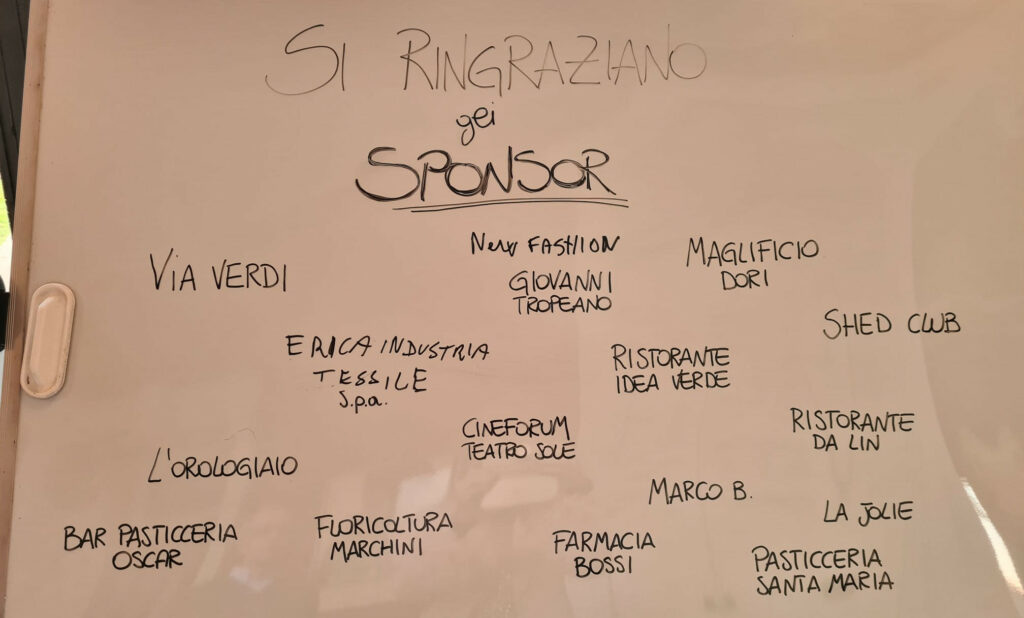 SI RINGRAZIANO
gei
SPONSOR
VIA VERDI
New FASHION
GIOVANNI
TROPEANO
MAGLIFICIO
DORI
SHED CLUB
ERICA INDUSTRIA
TESSILE
S.p.a.
RISTORANTE
IDEA VERDE
CINEFORUM
TEATRO SOLE
RISTORANTE
DA LIN
L'OROLOGIAIO
MARCO B.
LA JOLIE
BAR PASTICCERIA
OSCAR
FLORICOLTURA
MARCHINI
FARMACIA
BOSSI
PASTICCERIA
SANTA MARIA